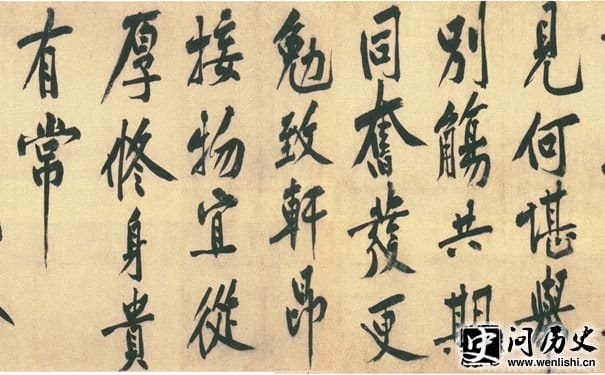 見何堪舉
別觴共期
同奮發更
勉致軒昂
接物宜從
厚修身貴
有常
史
问历史
www.wenlishi.cn